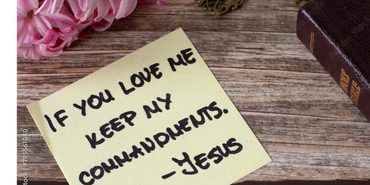 IF YOU LOVE ME
KEEP MY
COMMANDMENTS.
-JESUS